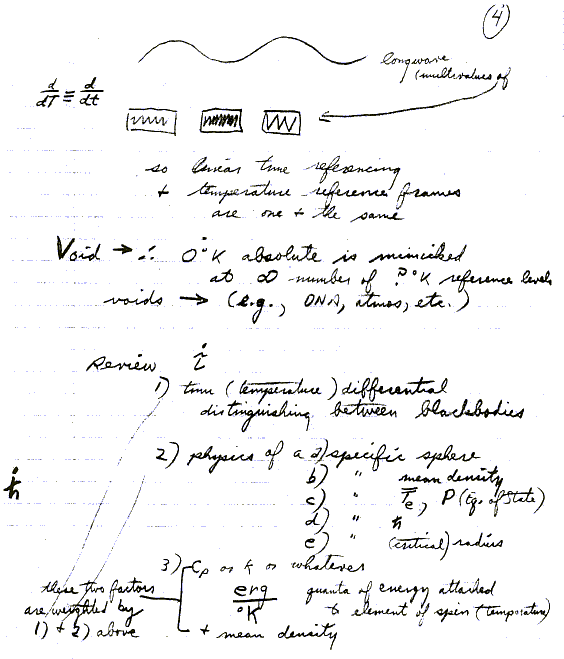 4
longwave
(multivalues of
d/dT ≡ d/dt
so linear time referencing
+ temperature reference frames
are one + the same
Void → ∴ 0°K absolute is mimicked
at ∞ number of ?°K reference levels
voids → (e.g., DNA, atmos, etc.)
Review i
1) time (temperature) differential
distinguishing between blackbodies
2) physics of a a) specific sphere
b) " mean density
c) " Te, P (Eq. of State)
d) " ħ
e) " (critical) radius
ħ
3) Cp or k or whatever
these two factors erg/°K quanta of energy attached
are weighted by to element of spin (temperature)
1) + 2) above + mean density